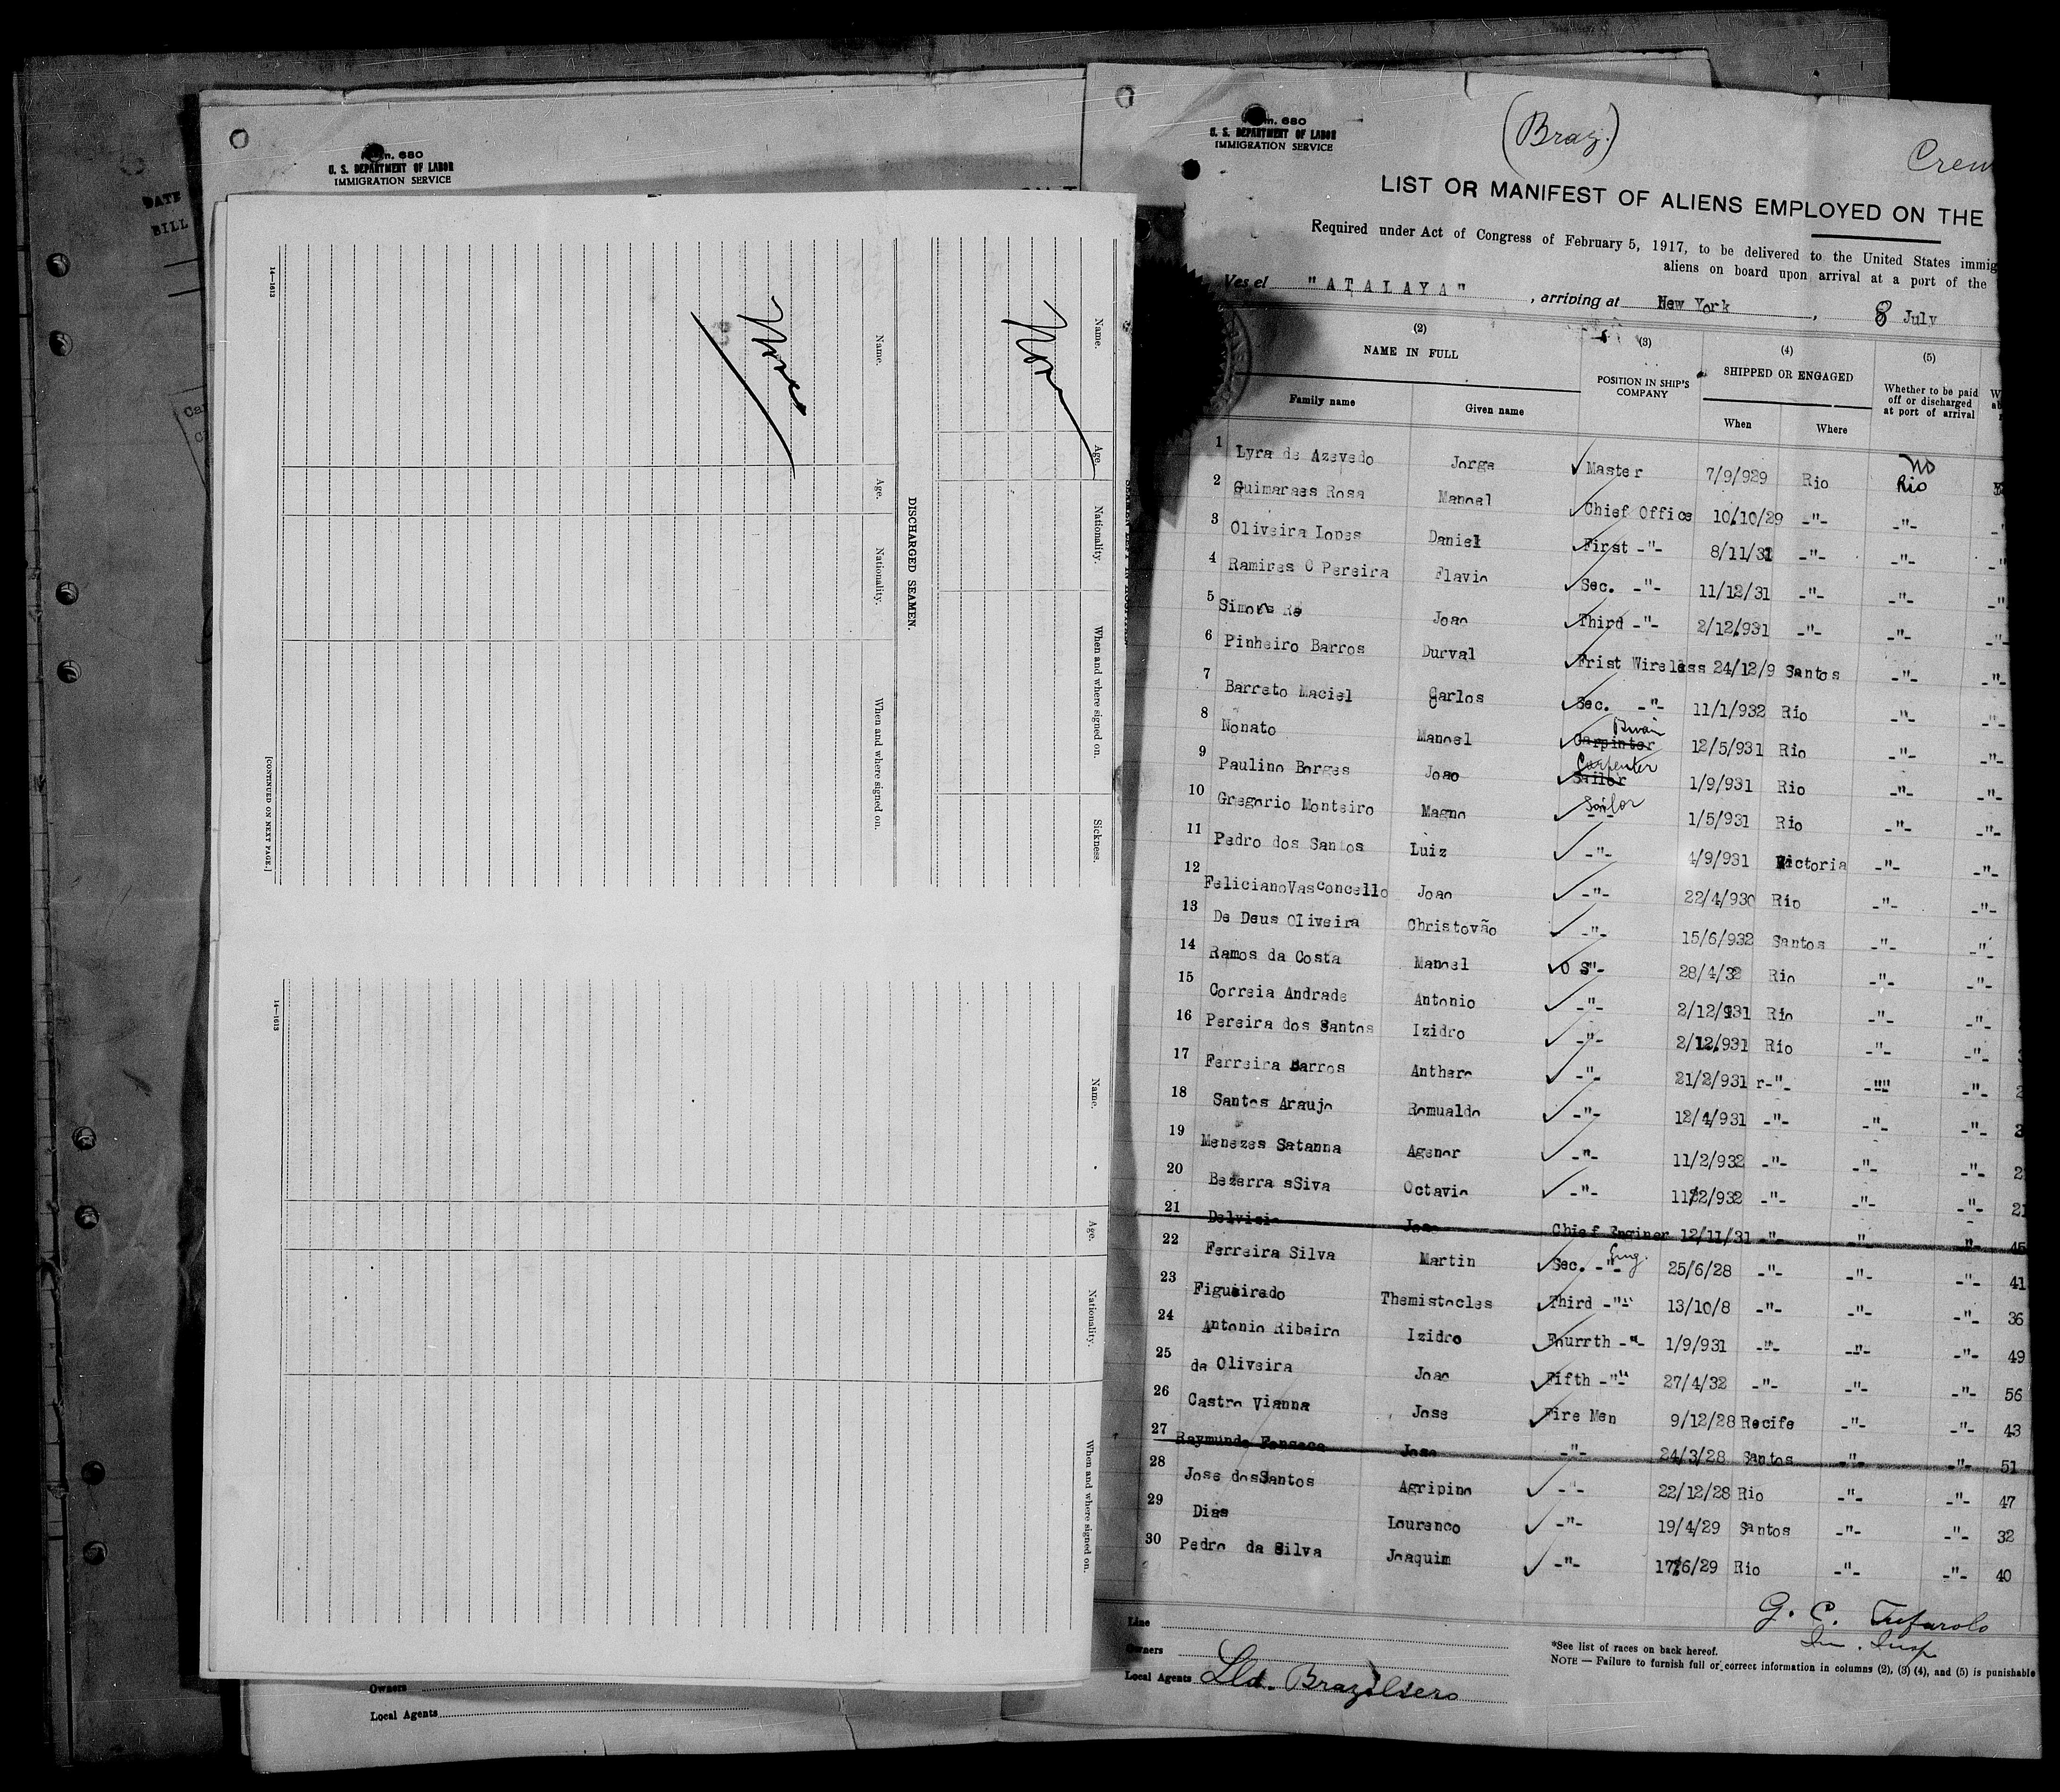 DATE
BILL
Form. 680
U. S. DEPARTMENT OF LABOR
IMMIGRATION SERVICE
Name. Age. Nationality. When and where signed on. Sickness.
DISCHARGED SEAMEN.
Name. Age. Nationality. When and where signed on.
None
14—1613
[CONTINUED ON NEXT PAGE.]
Name. Age. Nationality. When and where signed on.
14—1613
Owners
Local Agents
Form. 680
U. S. DEPARTMENT OF LABOR
IMMIGRATION SERVICE
(Braz.)
Crew
LIST OR MANIFEST OF ALIENS EMPLOYED ON THE
Required under Act of Congress of February 5, 1917, to be delivered to the United States immig
aliens on board upon arrival at a port of the
Vessel "ATALAYA", arriving at New York, 8 July
(2) (3) (4) (5)
NAME IN FULL POSITION IN SHIP'S COMPANY SHIPPED OR ENGAGED Whether to be paid off or discharged at port of arrival
Family name Given name When Where
1 Lyra de Azevedo Jorge Master 7/9/929 Rio No Rio
2 Guimaraes Rosa Manoel Chief Office 10/10/29 -"- -"-
3 Oliveira Lopes Daniel First -"- 8/11/31 -"- -"- -"
4 Ramires O Pereira Flavio Sec. -"- 11/12/31 -"- -"- -"
5 Simoes Re Joao Third -"- 2/12/931 -"- -"- -"-
6 Pinheiro Barros Durval Frist Wireless 24/12/9 Santos -"- -"-
7 Barreto Maciel Carlos Sec. -"- 11/1/932 Rio -"- -"-
8 Nonato Manoel Carpinter 12/5/931 Rio -"- -"-
9 Paulino Borges Joao Sailor Carpenter 1/9/931 Rio -"- -"-
10 Gregorio Monteiro Magno Sailor -"- 1/5/931 Rio -"- -"-
11 Pedro dos Santos Luiz -"- 4/9/931 Victoria -"- -"-
12 FelicianoVasconcello Joao -"- 22/4/930 Rio -"- -"-
13 De Deus Oliveira Christovão -"- 15/6/932 Santos -"- -"
14 Ramos da Costa Manoel O S"- 28/4/32 Rio -"- -"-
15 Correia Andrade Antonio -"- 2/12/931 Rio -"- -"-
16 Pereira dos Santos Izidro -"- 2/12/931 Rio -"- -"-
17 Ferreira Barros Anthero -"- 21/2/931 r-"- -""- -"-
18 Santos Araujo Romualdo -"- 12/4/931 -"- -"- -"-
19 Menezes Satanna Agenor -"- 11/2/932 -"- -"- -"-
20 Bezerra sSiva Octavio -"- 11/2/932 -"- -"- -"- 21
21 Chief Enginer 12/11/31 -"- -"- -"- 45
22 Ferreira Silva Martin Sec. -"- Eng. 25/6/28 -"- -"- -"- 41
23 Figueiredo Themistocles Third -"- 13/10/8 -"- -"- -"- 36
24 Antonio Ribeiro Izidro Fourrth -"- 1/9/931 -"- -"- -"- 49
25 de Oliveira Joao Fifth -"- 27/4/32 -"- -"- -"- 56
26 Castro Vianna Jose Fire Men 9/12/28 Recife -"- -"- 43
27 Raymundo Fonseca Jose -"- 24/3/28 Santos -"- -"- 51
28 Jose dosSantos Agripino -"- 22/12/28 Rio -"- -"- 47
29 Dias Lourenco -"- 19/4/29 Santos -"- -"- 32
30 Pedro da Silva Joaquim -"- 17/6/29 Rio -"- -"- 40
G. C.
Im. Insp
Line
Owners
Local Agents Lld. Braziliero
*See list of races on back hereof.
NOTE — Failure to furnish full or correct information in columns (2), (3) (4), and (5) is punishable